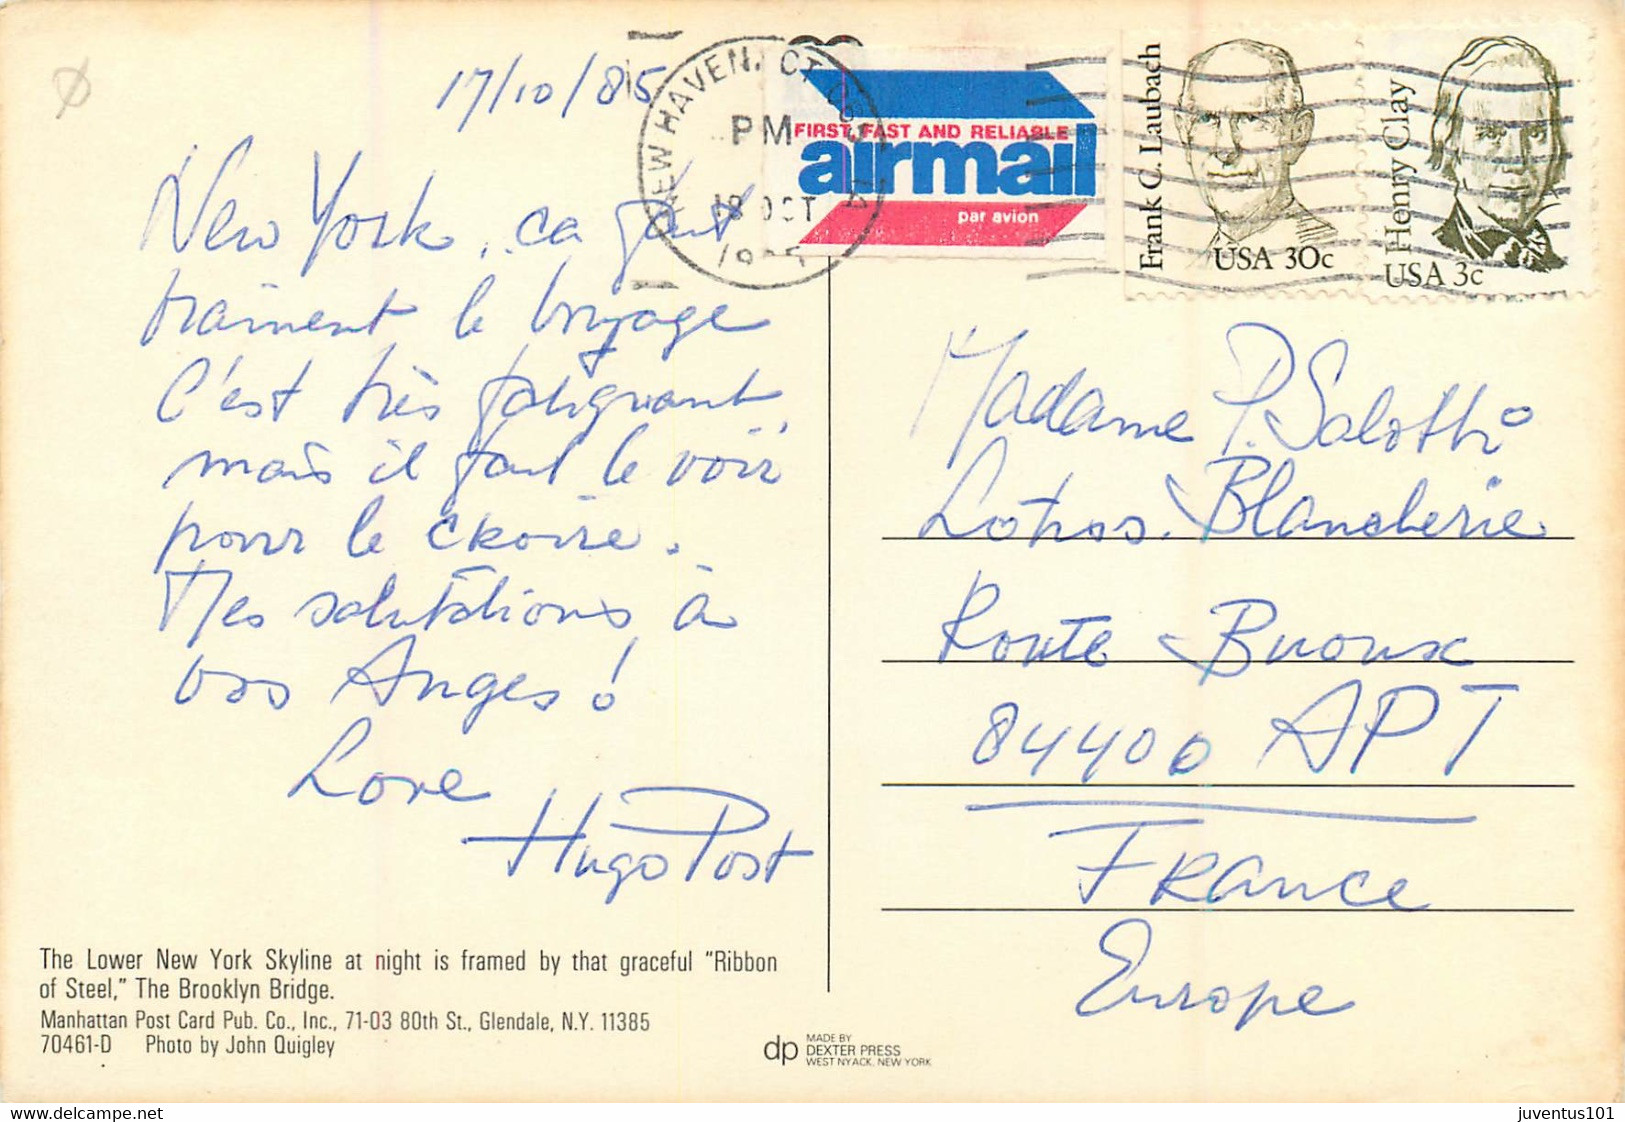 17/10/85
New York, ca faut
vraiment le voyage
C'est très fatiguant,
mais il faut le voir
pour le croire.
Mes salutations à
vos Anges !
Love
Hugo Post
The Lower New York Skyline at night is framed by that graceful "Ribbon
of Steel," The Brooklyn Bridge.
Manhattan Post Card Pub. Co., Inc., 71-03 80th St., Glendale, N.Y. 11385
70461-D Photo by John Quigley
dp
MADE BY
DEXTER PRESS
WEST NYACK, NEW YORK
NEW HAVEN, CT
PM
18 OCT
FIRST, FAST AND RELIABLE
airmail
par avion
Frank C. Laubach
USA 30c
Henry Clay
USA 3c
Madame P. Salotti
Blancherie
Route Buoux
84400 APT
France
Europe
juventus101